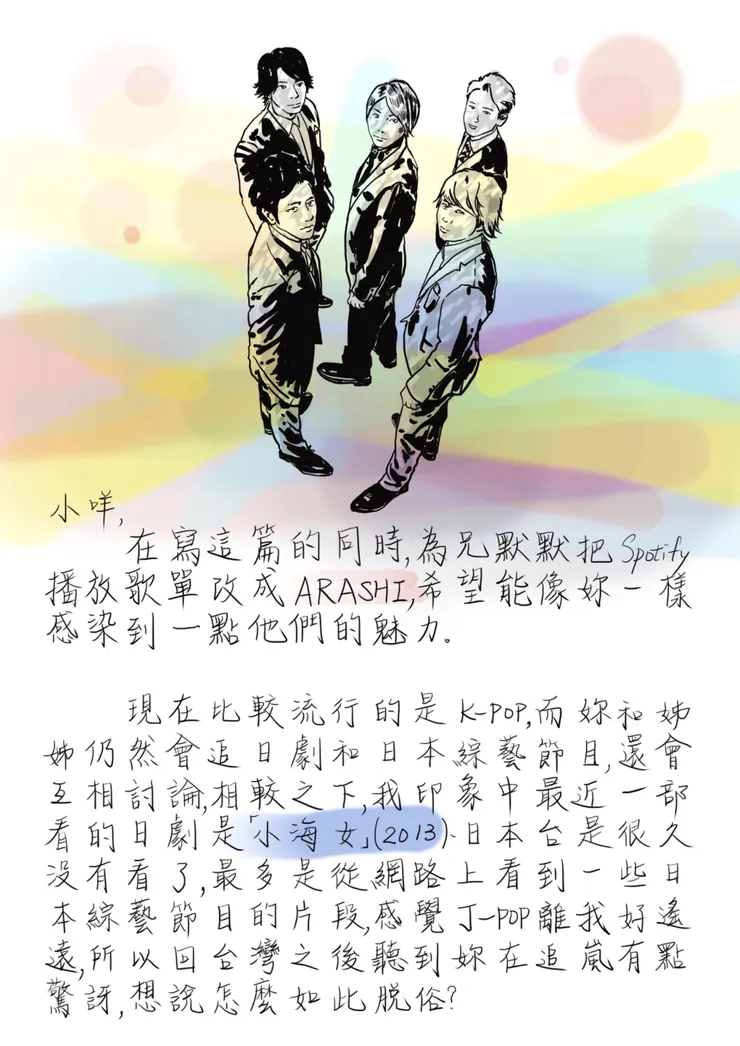 小咩,
在寫這篇的同時,為兄默默把Spotify
播放歌單改成ARASHI,希望能像妳一樣
感染到一點他們的魅力。
現在比較流行的是K-POP,而妳和姊
姊仍然會追日劇和日本綜藝節目,還會
互相討論,相較之下,我印象中最近一部
看的日劇是「小海女」(2013).日本台是很久
沒有看了,最多是從網路上看到一些日
本綜藝節目的片段,感覺J-POP離我好遙
遠,所以回台灣之後聽到妳在追嵐有點
驚訝,想說怎麼如此脫俗?